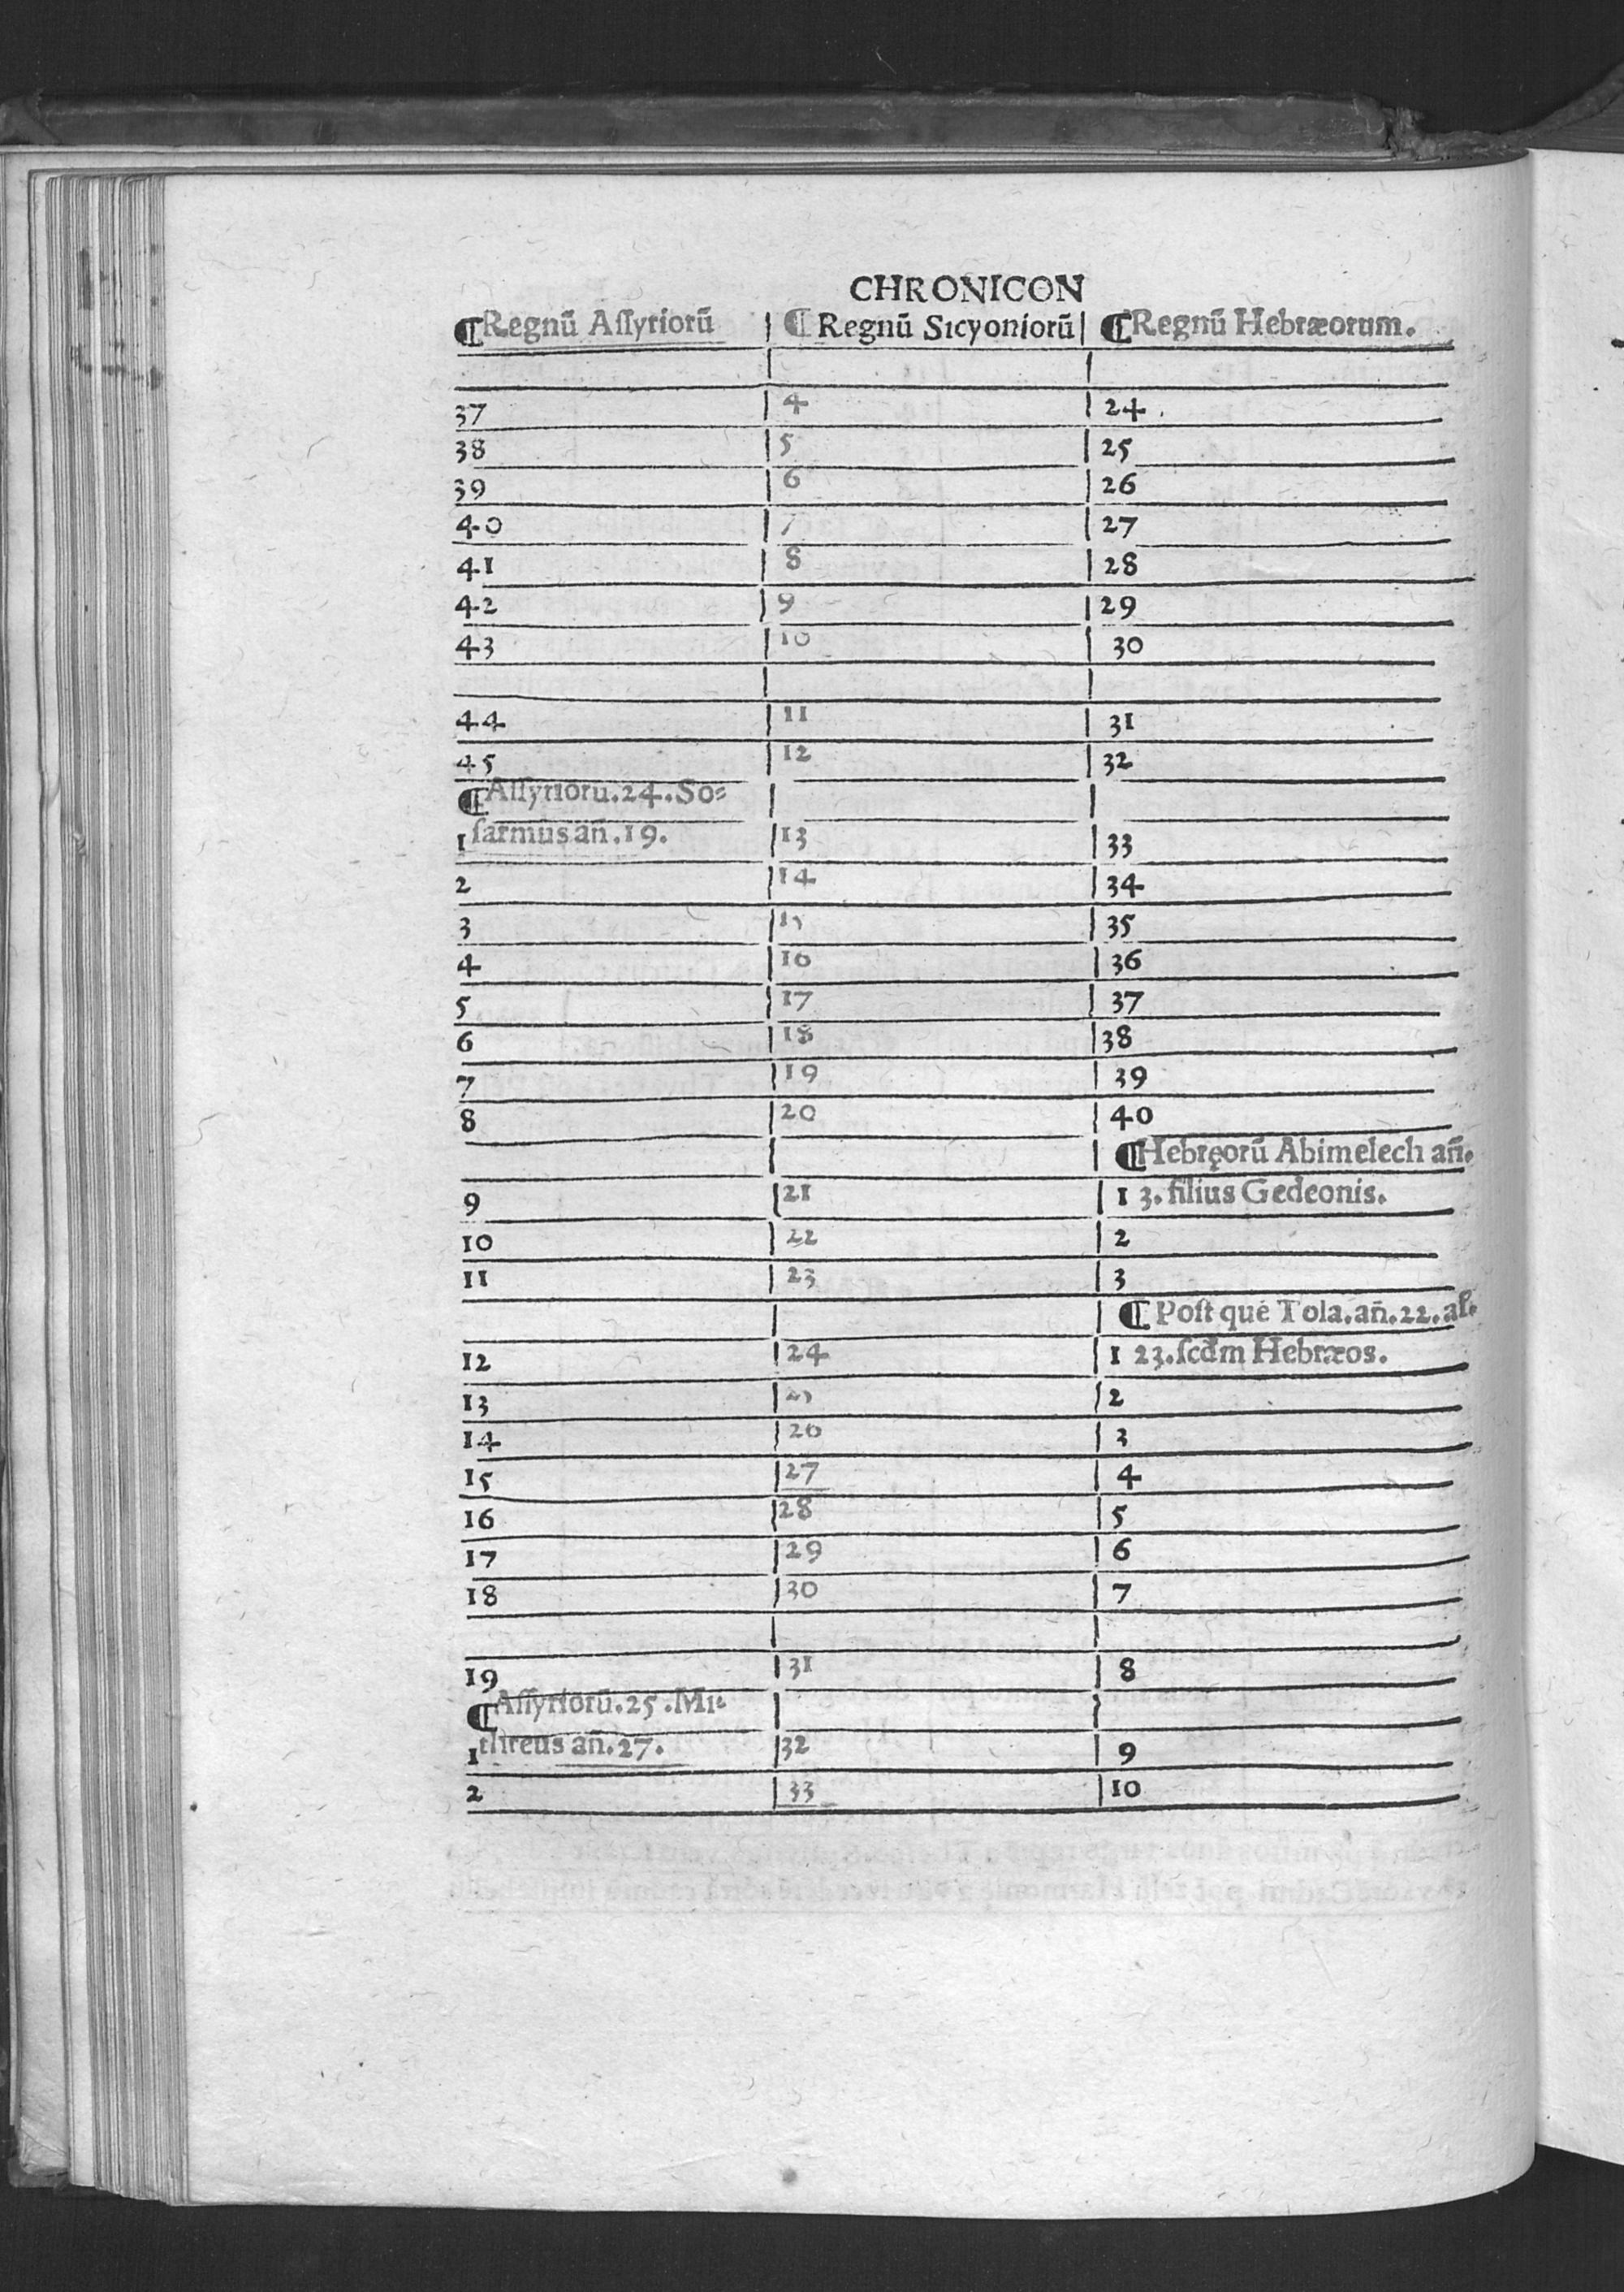 CHRONICON
¶Regnū Aſſyriorū ¶ Regnū Sicyoniorū ¶Regnū Hebræorum.
37 4 24
38 5 25
39 6 26
40 7 27
41 8 28
42 9 29
43 10 30
44 11 31
45 12 32
¶Aſſyrioru.24.So⸗
1 ſarmus añ.19. 13 33
2 14 34
3 15 35
4 16 36
5 17 37
6 18 38
7 19 39
8 20 40
¶Hebręorū Abimelech añ.
9 21 1 3. filius Gedeonis.
10 22 2
11 23 3
¶ Poſt quē Tola.añ.22.al.
12 24 1 23.ſcd̄m Hebræos.
13 25 2
14 26 3
15 27 4
16 28 5
17 29 6
18 30 7
19 31 8
¶Aſſyriorū.25.Mi⸗
1 threus añ.27. 32 9
2 33 10